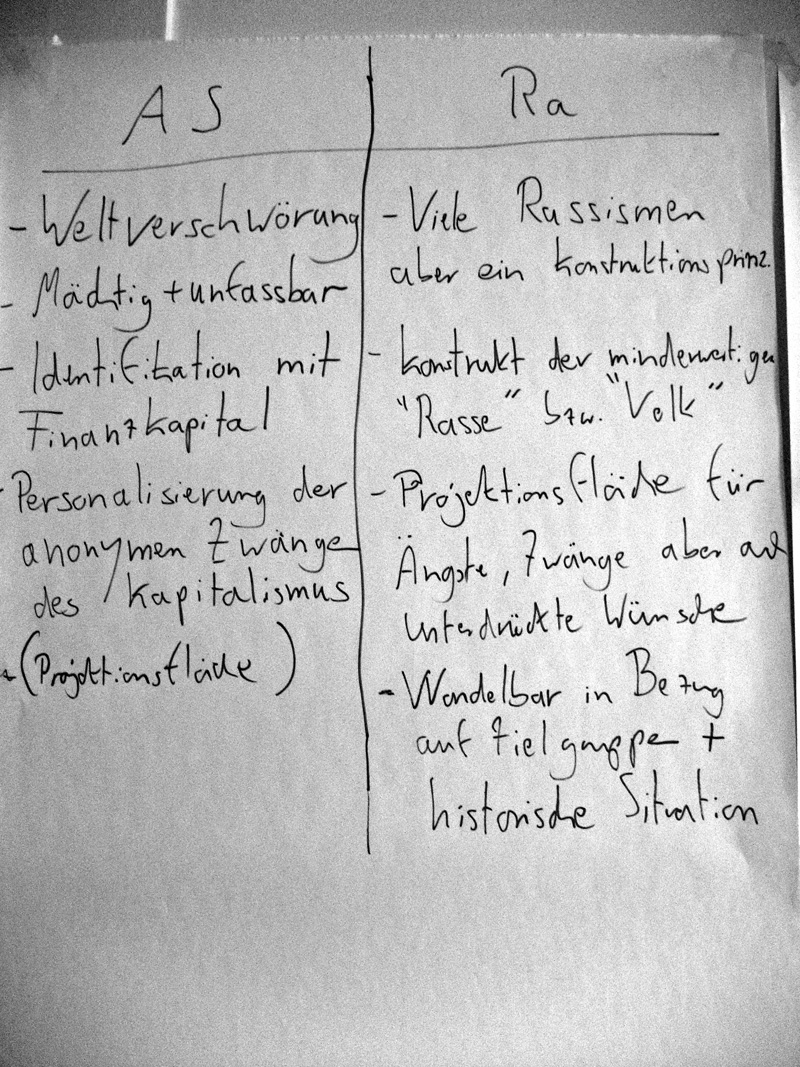 AS
- Weltverschwörung
- Mächtig + unfassbar
- Identifikation mit
Finanzkapital
- Personalisierung der
anonymen Zwänge
des Kapitalismus
- (Projektionsfläche)
Ra
- Viele Rassismen
aber ein Konstruktionsprinz.
- Konstrukt der minderwertigen
"Rasse" bzw. "Volk"
- Projektionsfläche für
Ängste, Zwänge aber auch
unterdrückte Wünsche
- Wandelbar in Bezug
auf Zielgruppe +
historische Situation